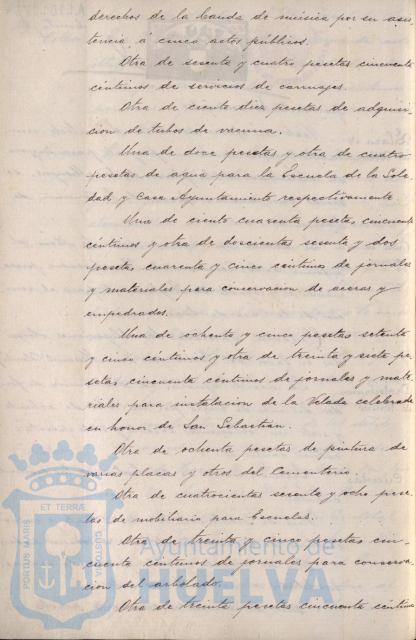 derechos de la banda de música por su asis
tencia á cinco actos públicos.
Otra de sesenta y cuatro pesetas cincuenta
céntimos de servicios de carruajes.
Otra de ciento diez pesetas de adquisi-
cion de tubos de vacuna.
Una de doce pesetas y otra de cuatro
pesetas de agua para la Escuela de la Sole
dad y Casa Ayuntamiento respectivamente.
Una de ciento cuarenta pesetas cincuenta
céntimos y otra de doscientas sesenta y dos
pesetas cuarenta y cinco céntimos de jornales
y materiales para conservacion de aceras y
empedrados.
Una de ochenta y cinco pesetas setenta
y cinco céntimos y otra de treinta y siete pe
setas cincuenta céntimos de jornales y mate
riales para instalacion de la Velada celebrada
en honor de San Sebastian.
Otra de ochenta pesetas de pintura de
varias placas y otros del Cementerio.
Otra de cuatrocientas sesenta y ocho pese
tas de mobiliario para Escuelas.
Otra de treinta y cinco pesetas cin-
cuenta céntimos de jornales para conserva
cion del arbolado.
Otra de treinta pesetas cincuenta céntimos
ET TERRA
PORTUS MARIS
CUSTODIA
Ayuntamiento de
HUELVA